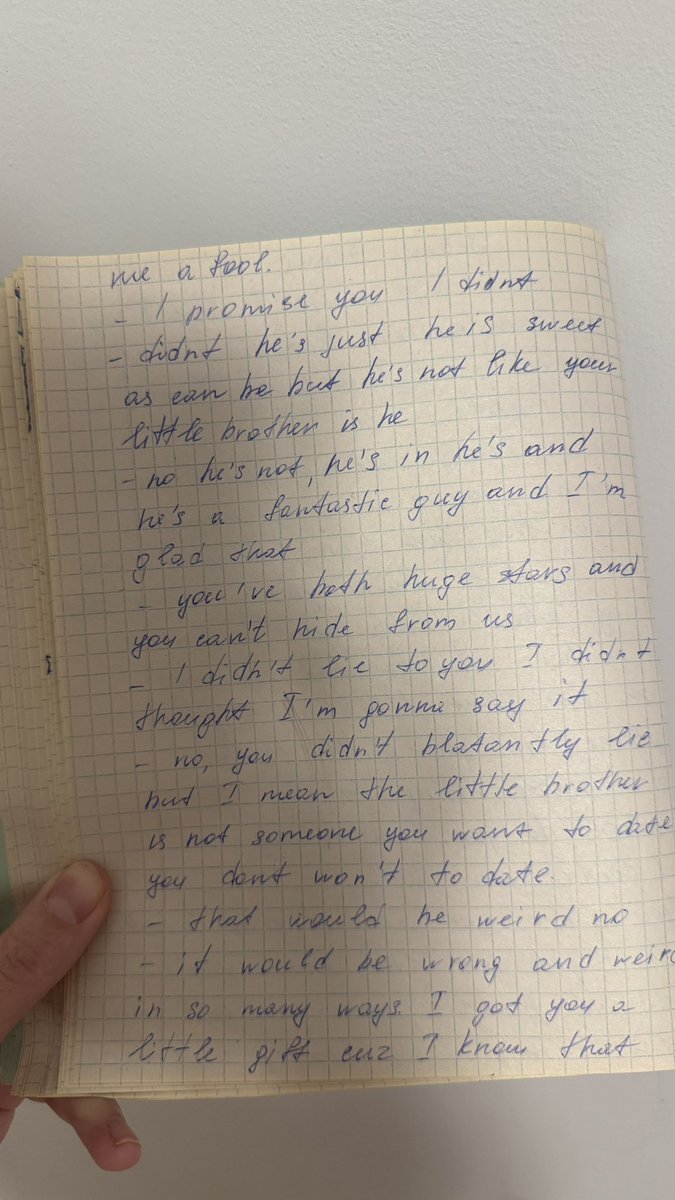 me a fool.
- I promise you I didnt
- didnt he's just he is sweet
as can be but he's not like your
little brother is he
- no he's not, he's in he's and
he's a fantastic guy and I'm
glad that
- you've both huge stars and
you can't hide from us
- I didn't lie to you I didn't
thought I'm gonna say it
- no, you didn't blatantly lie
but I mean the little brother
is not someone you want to date
you dont won't to date.
- that would be weird no
- it would be wrong and weird
in so many ways. I got you a
little gift cuz I know that